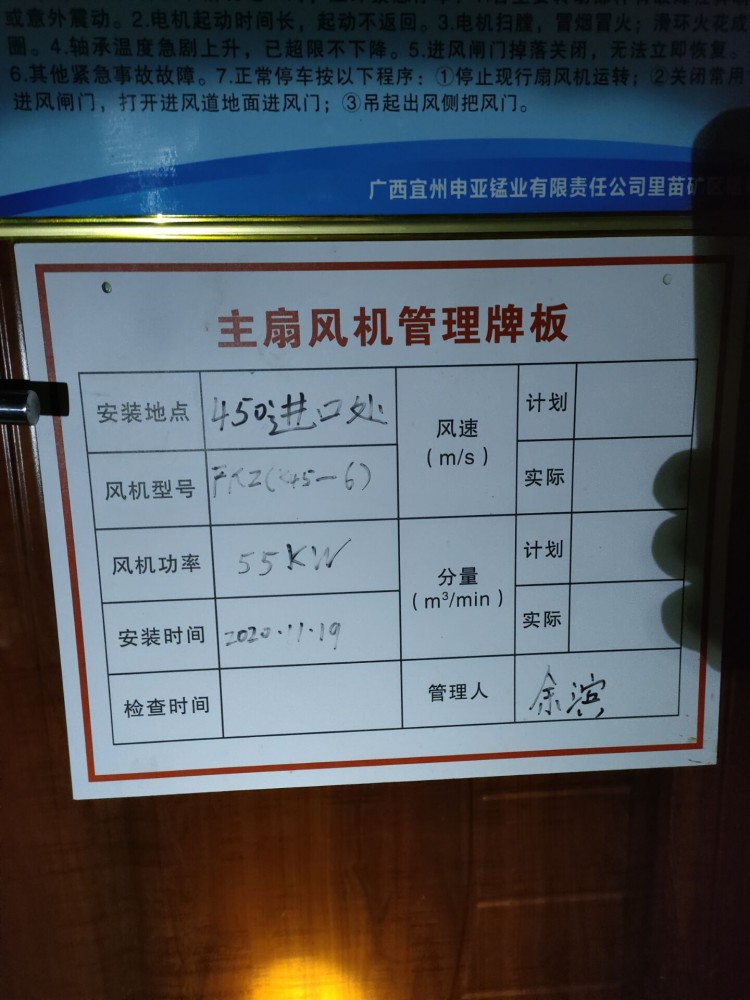 或意外震动。2.电机起动时间长，起动不返回。3.电机扫膛，冒烟冒火；滑环火花成
圈。4.轴承温度急剧上升，已超限不下降。5.进风闸门掉落关闭，无法立即恢复。
6.其他紧急事故故障。7.正常停车按以下程序：①停止现行扇风机运转；②关闭常用
进风闸门，打开进风道地面进风门；③吊起出风侧把风门。
广西宜州申亚锰业有限责任公司里苗矿
主扇风机管理牌板
安装地点 450进口处
风速 (m/s) 计划
风机型号
实际
风机功率 55KW
分量 (m³/min) 计划
安装时间 2020.11.19
实际
检查时间
管理人 余滨